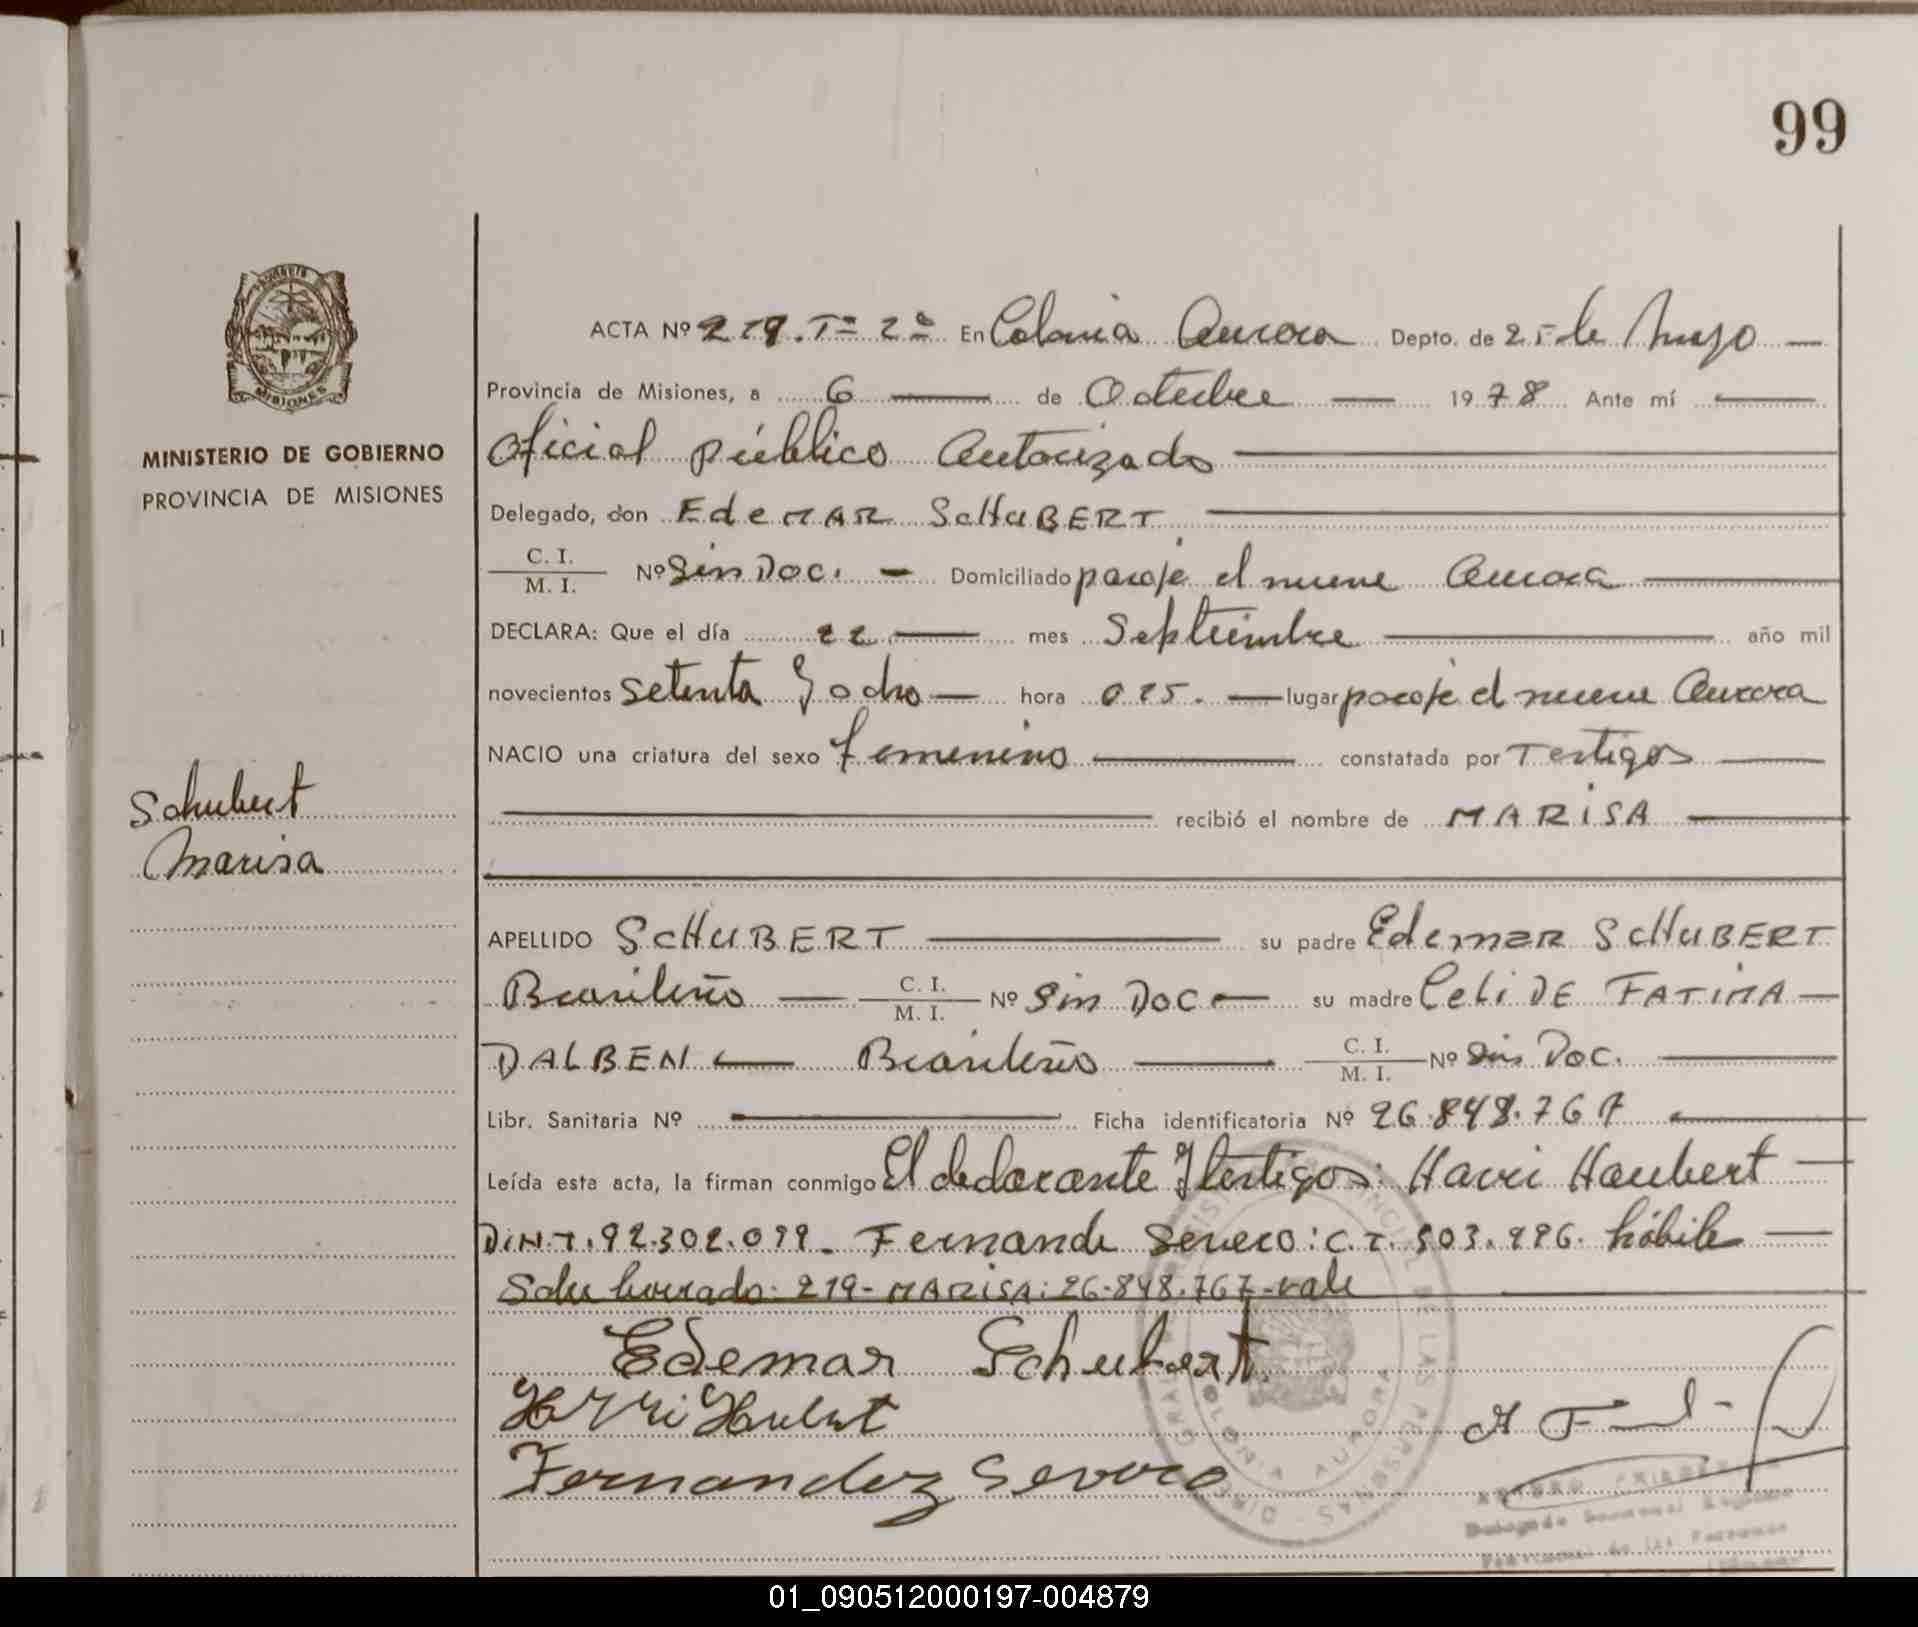 99
MISIONES
MINISTERIO DE GOBIERNO
PROVINCIA DE MISIONES
Schubert
Marisa
ACTA Nº 219. Tº 2º En Colonia Aurora Depto. de 25 de Mayo
Provincia de Misiones, a 6 de Octubre 1978 Ante mí
Oficial público Autorizado
Delegado, don EdeMAR ScHuBERT
C. I. / M. I. Nº Sin Doc. Domiciliado paraje el nueve Aurora
DECLARA: Que el día 22 mes Septiembre año mil
novecientos setenta y ocho hora 0.15. lugar paraje el nueve Aurora
NACIO una criatura del sexo femenino constatada por Testigos
recibió el nombre de MARiSA
APELLIDO ScHuBERT su padre Edemar ScHuBERT
Brasileño C. I. / M. I. Nº Sin Doc su madre Celi DE FATIMA
DALBEN Brasileño C. I. / M. I. Nº Sin Doc.
Libr. Sanitaria Nº Ficha identificatoria Nº 26.848.767
Leída esta acta, la firman conmigo El declarante y testigos: Harri Haubert
D.N.I. 92.302.099. Fernande Severo: C.I. 503.996. hábile
Sobre borrado: 219- MARiSA: 26.848.767-vale
Edemar Schubert
Harri Haubert
Fernandez Severo
COLONIA AURORA
DE LAS PERSONAS
01_090512000197-004879